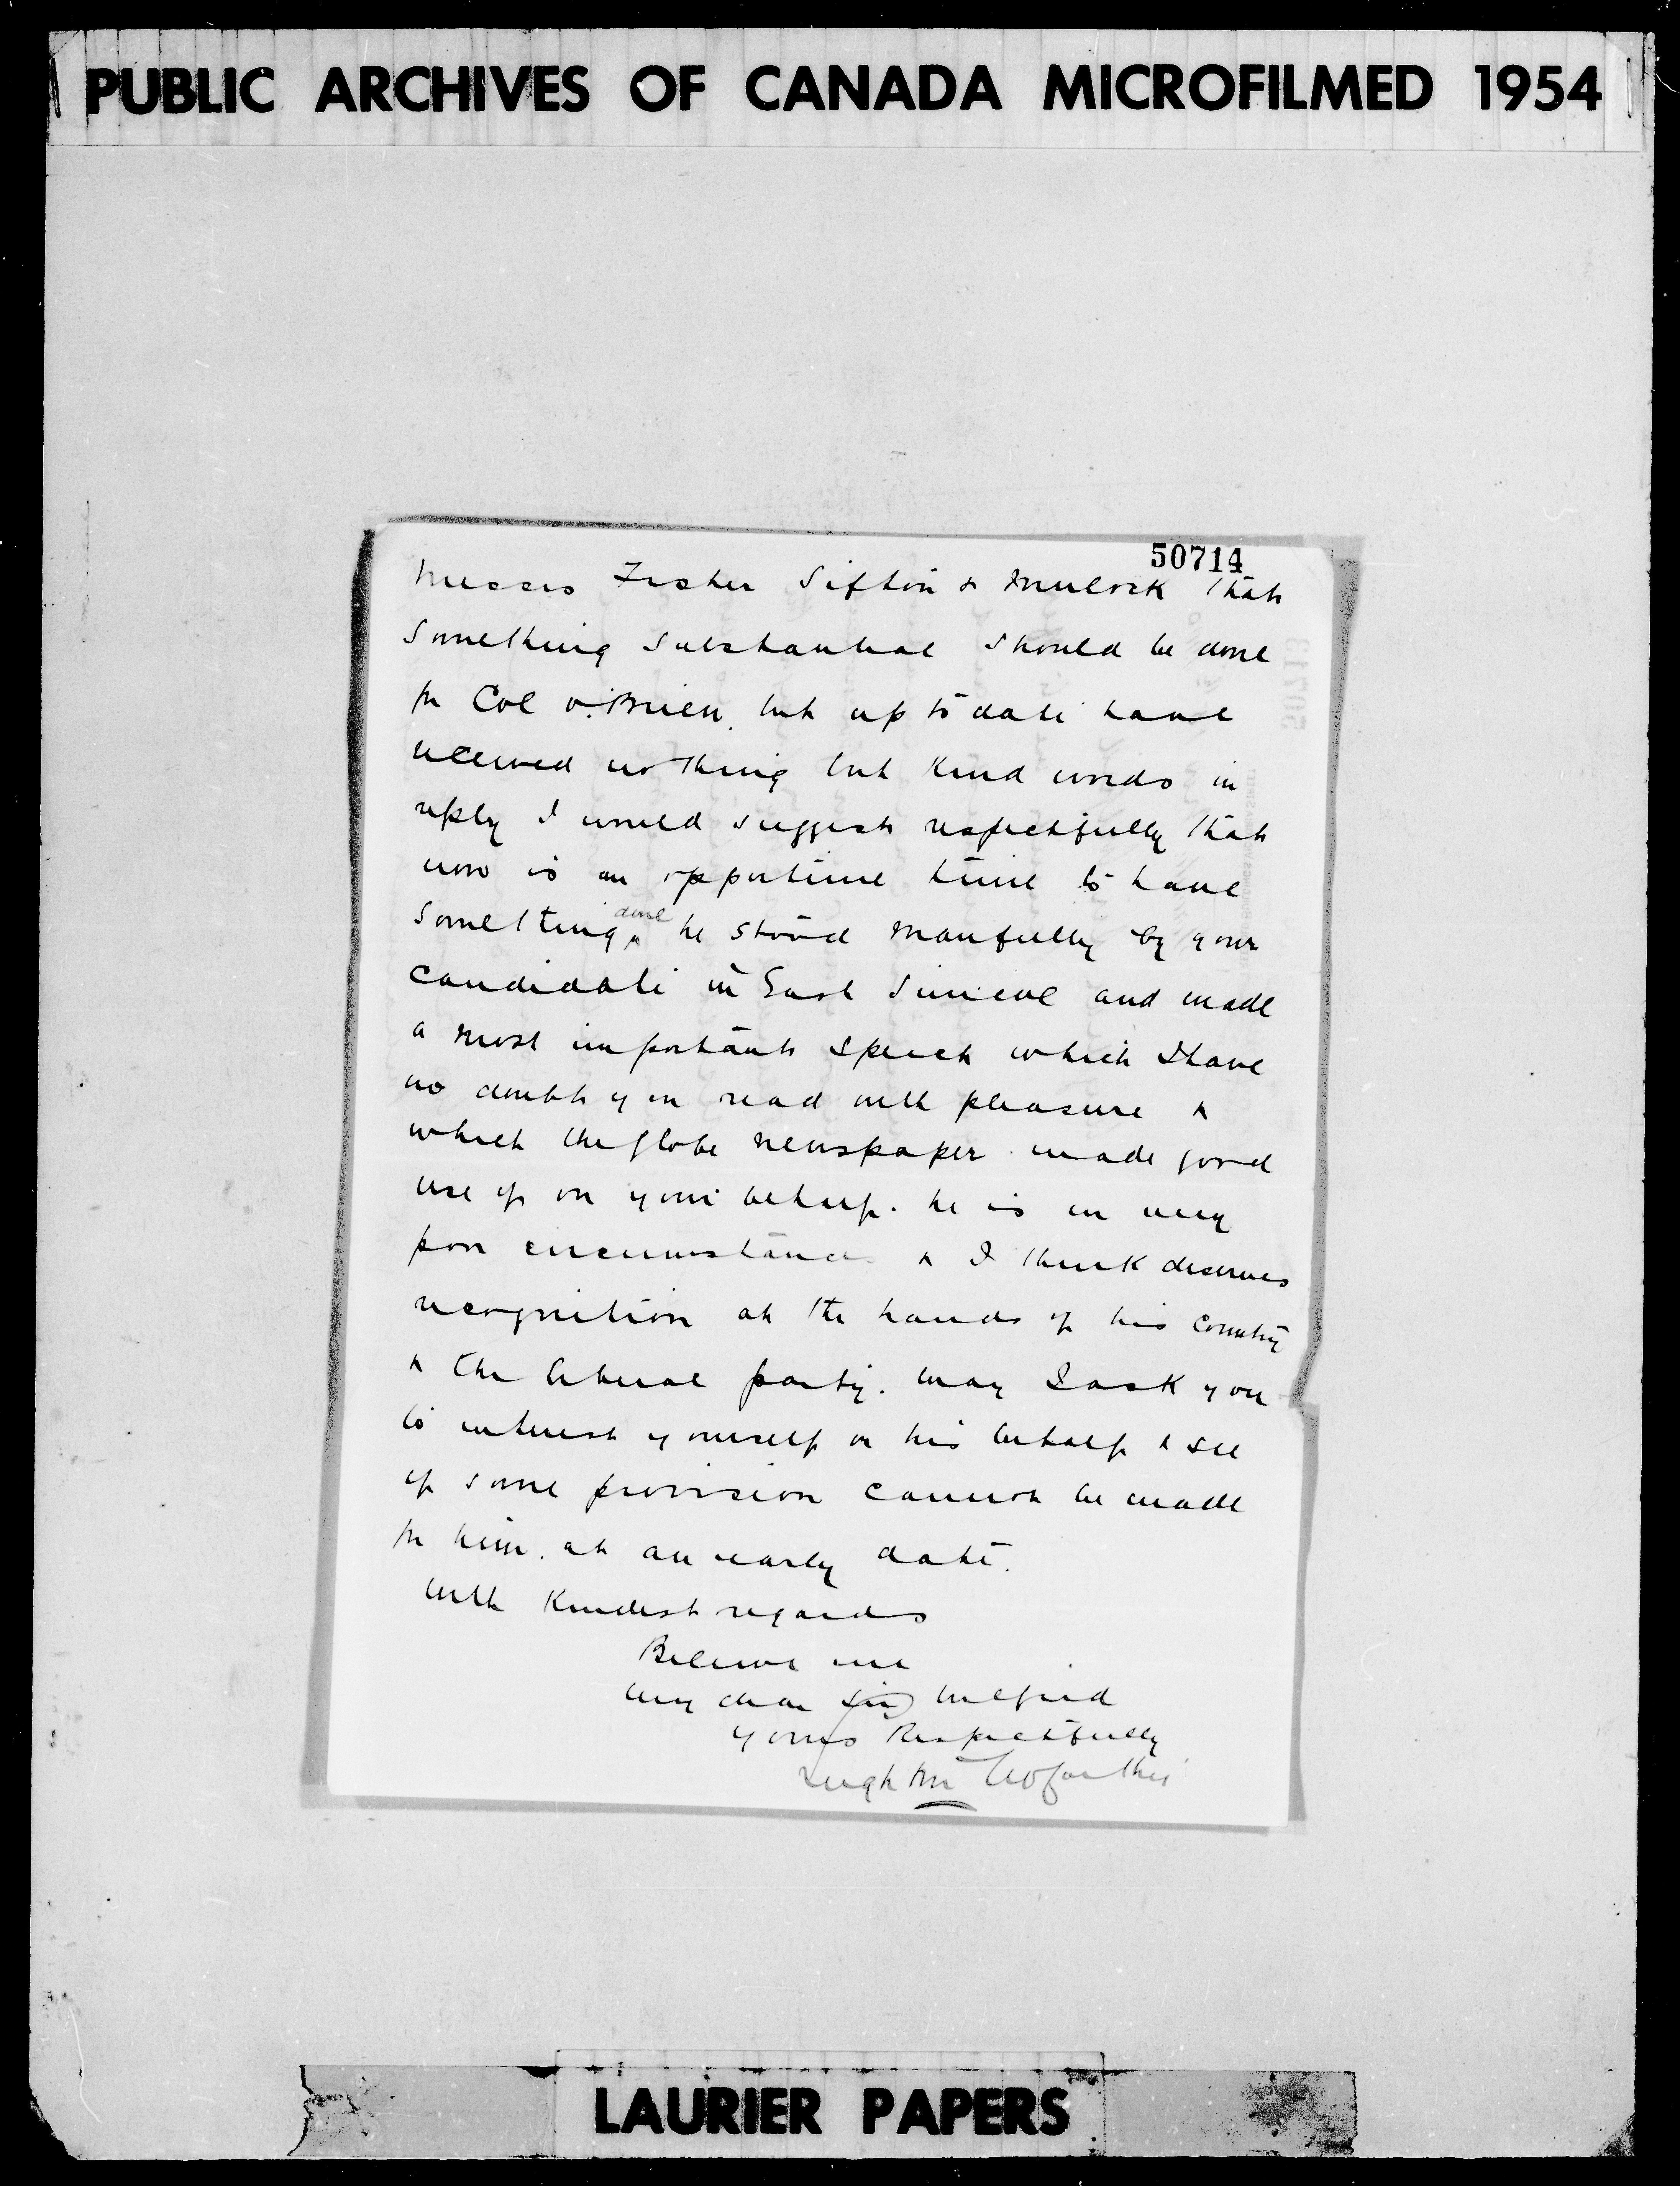 PUBLIC ARCHIVES OF CANADA MICROFILMED 1954
50714
Messrs Fisher Sifton & Mulock that
something substantial should be done
for Col O'Brien. but up to date have
received nothing but kind words in
reply I would suggest respectfully that
now is an opportune time to have
something done he stood manfully by your
candidate in East Simcoe and made
a most important speech which I have
no doubt you read with pleasure &
which the Globe newspaper made good
use of on your behalf. he is in very
poor circumstances & I think deserves
recognition at the hands of his country
& the liberal party. may I ask you
to interest yourself on his behalf & see
if some provision cannot be made
for him. at an early date.
with Kindest regards
Believe me
my dear Sir Wilfrid
yours Respectfully
Leigh
LAURIER PAPERS